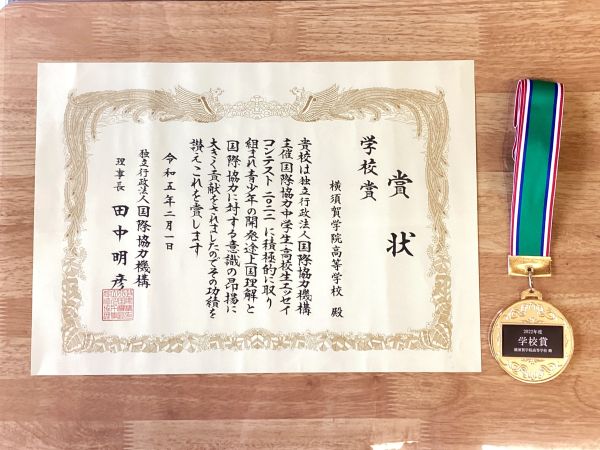 賞状
学校賞
横須賀学院高等学校 殿
貴校は独立行政法人国際協力機構
主催国際協力中学生・高校生エッセイ
コンテスト二〇二二に積極的に取り
組まれ青少年の開発途上国理解と
国際協力に対する意識の昂揚に
大きく貢献をされましたのでその功績を
讃えこれを賞します
令和五年二月一日
独立行政法人国際協力機構
理事長 田中明彦
2022年度
学校賞
横須賀学院高等学校 殿